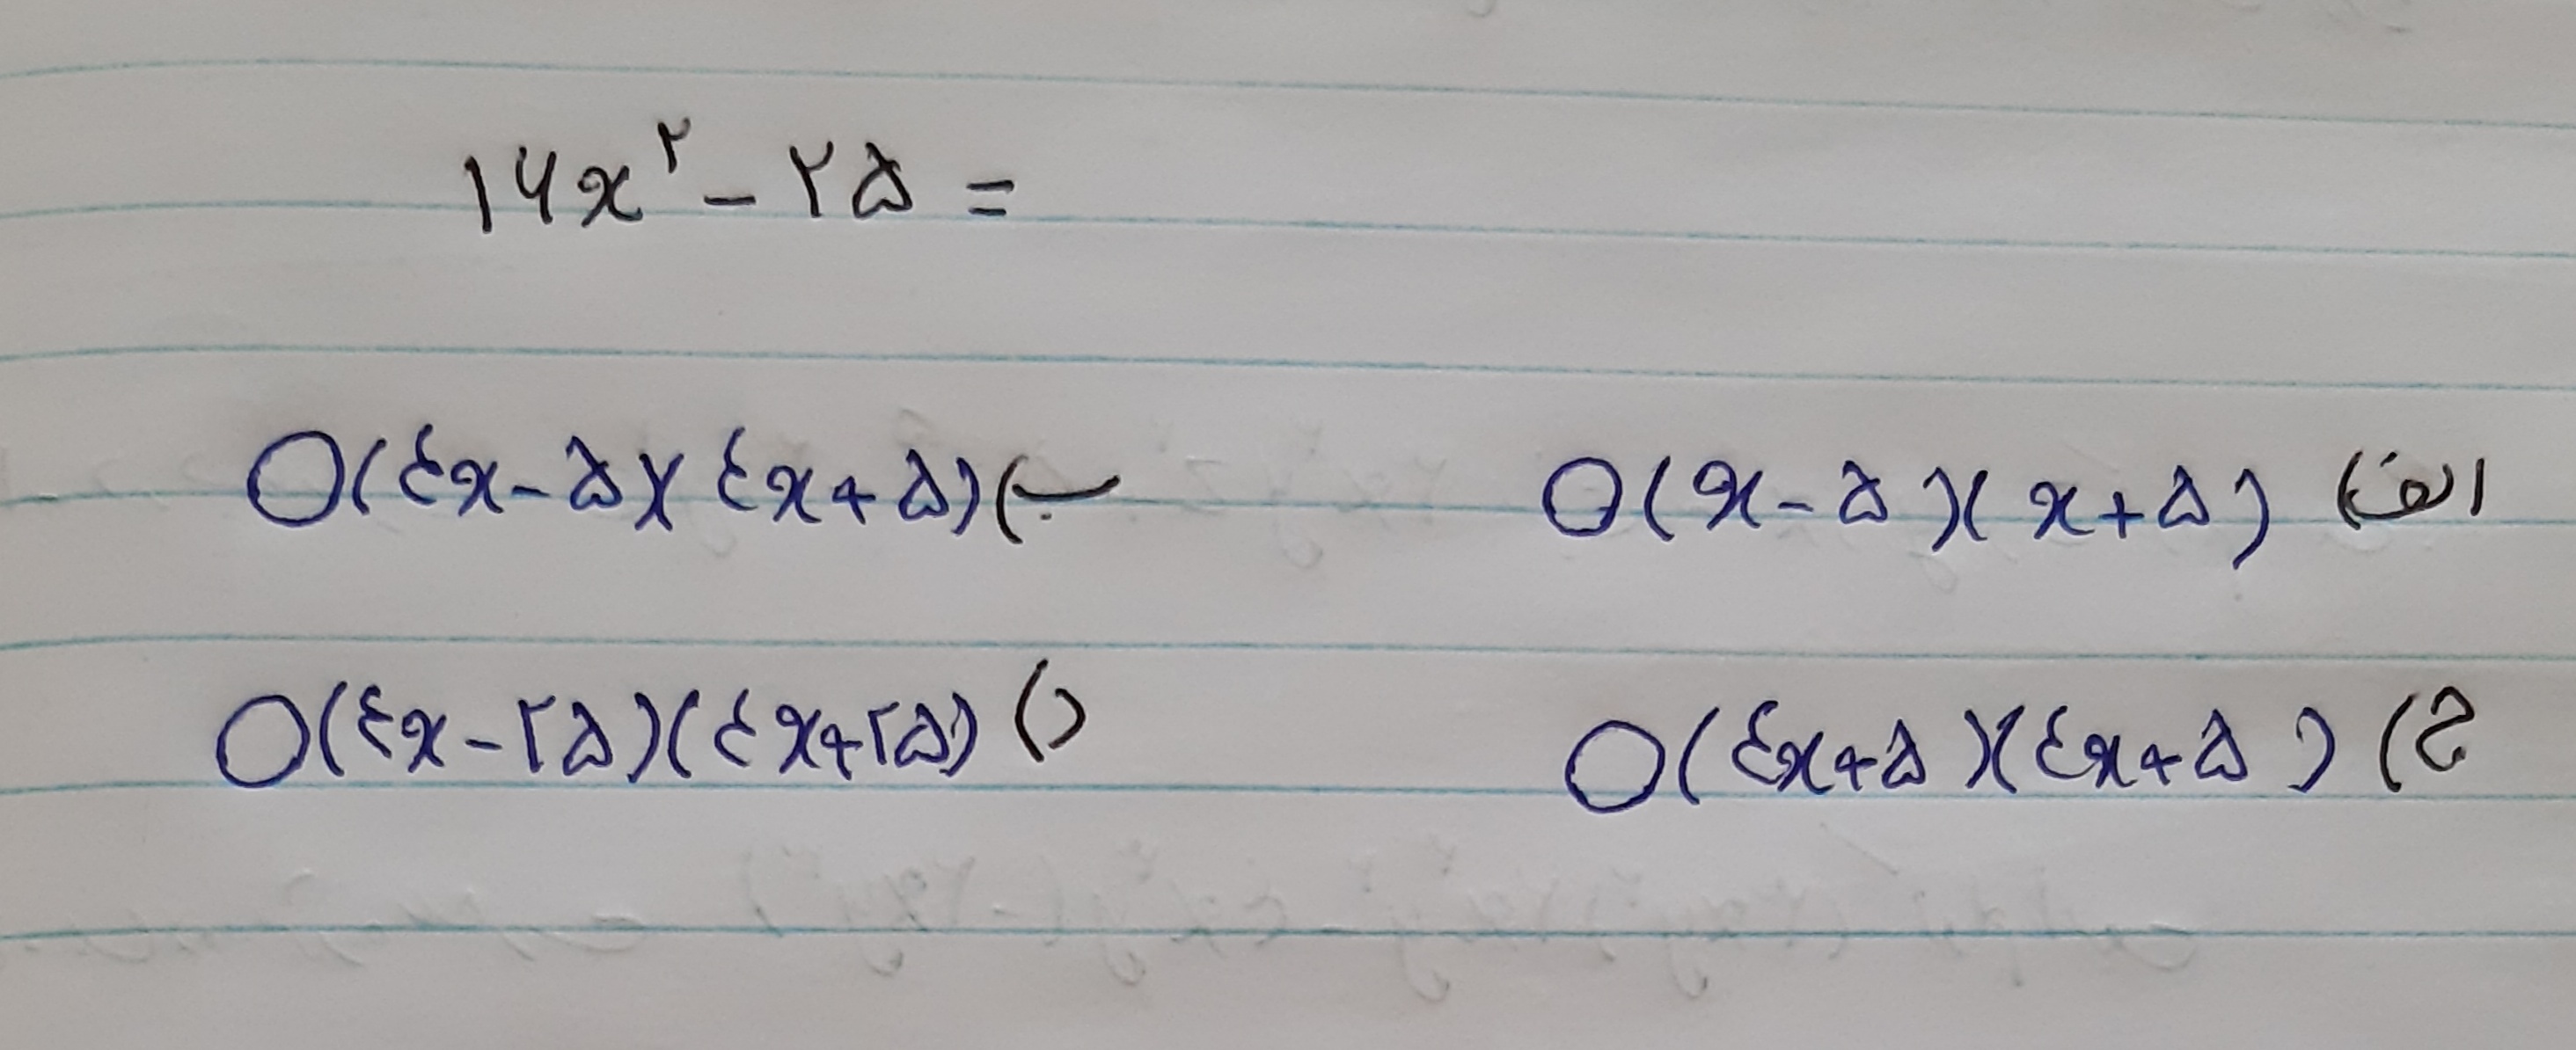 ۱۶x^۲ - ۲۵ =
الف) (x - ۵)(x + ۵) ○ ب) (۴x - ۵)(۴x + ۵) ○
ج) (۴x + ۵)(۴x + ۵) ○ د) (۴x - ۲۵)(۴x + ۲۵) ○